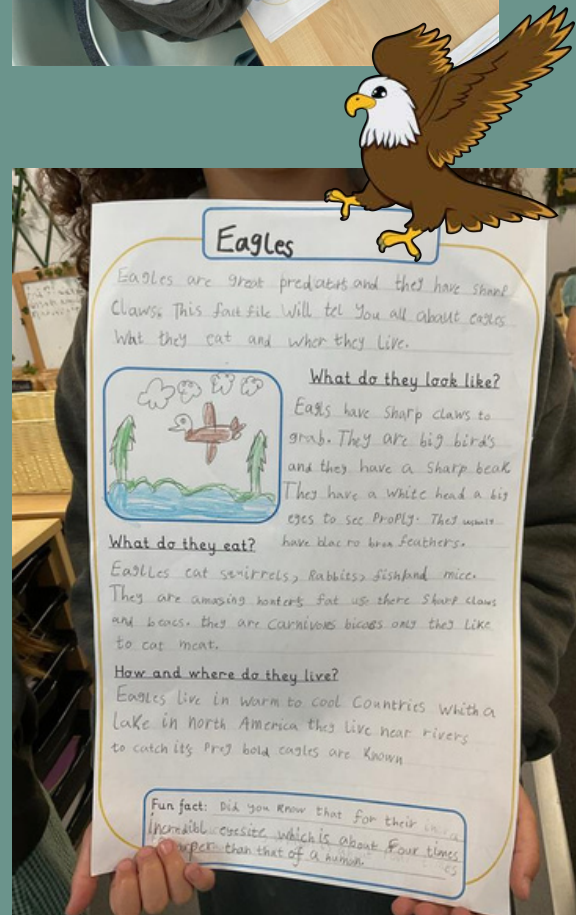 Eagles
Eagles are great predators and they have sharp
Claws. This fact file will tel you all about eagles
What they eat and wher they live.
What do they look like?
Eagls have sharp claws to
grab. They are big bird's
and they have a sharp beak
They have a white head a big
eyes to see Proply. They usually
have blac ro bron feathers.
What do they eat?
Eaglles eat squirrels, Rabbits, fish and mice.
They are amasing honters fat use there sharp claws
and beacs. they are Carnivores bicoes only they like
to eat meat.
How and where do they live?
Eagles live in warm to cool Countries Whith a
Lake in north America they live near rivers
to catch its Prey bold eagles are Known
Fun fact: Did you know that for their
incredibl eyesite which is about Four times
than that of a human.